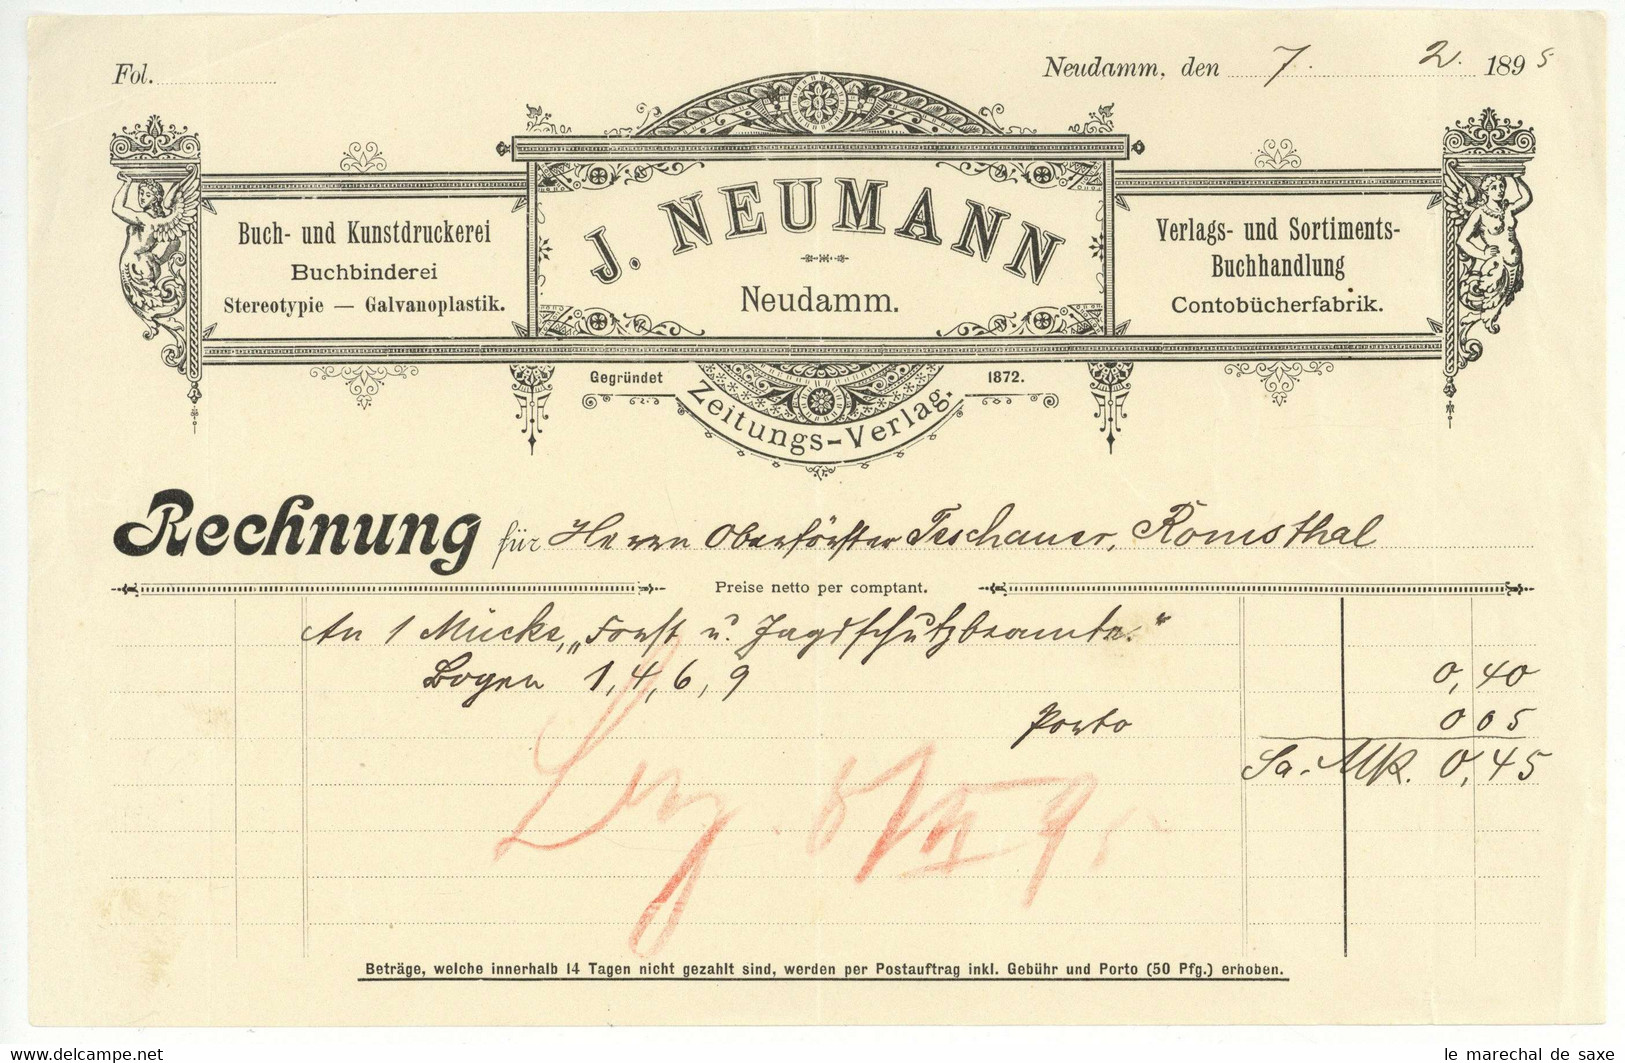 Fol.
Neudamm, den 7. 2. 1895
Buch- und Kunstdruckerei
Buchbinderei
Stereotypie — Galvanoplastik.
J. NEUMANN
Neudamm.
Verlags- und Sortiments-
Buchhandlung
Contobücherfabrik.
Gegründet 1872.
Zeitungs-Verlag.
Rechnung für Herrn Oberförster Teschauer, Romsthal
Preise netto per comptant.
An 1 Mücke, „Forst u. Jagdschutzbeamte."
Bogen 1, 4, 6, 9 0,40
Porto 005
Sa. Mk. 0,45
Beträge, welche innerhalb 14 Tagen nicht gezahlt sind, werden per Postauftrag inkl. Gebühr und Porto (50 Pfg.) erhoben.
https://www.delcampe.net
le marechal de saxe